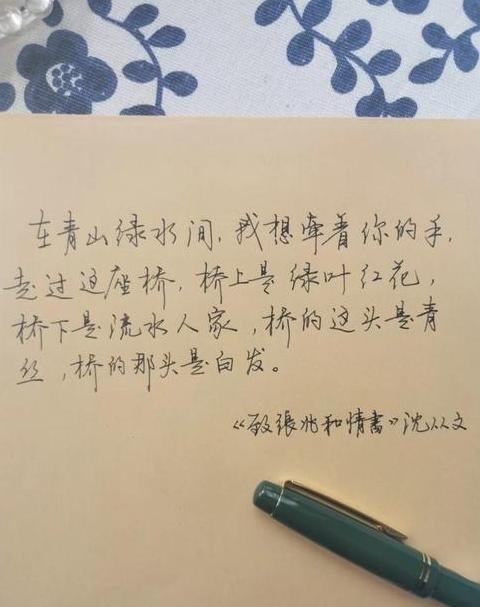 在青山绿水间，我想牵着你的手，
走过这座桥，桥上是绿叶红花，
桥下是流水人家，桥的这头是青
丝，桥的那头是白发。
《致張兆和情書》沈从文